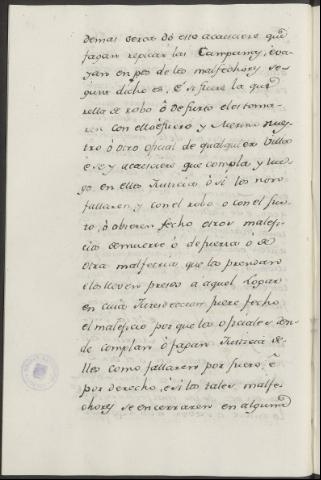 demas cerca dó esto acaeciere que
fagan repicar las Campanas, e va-
yan en pos de los malfechores se-
gund dicho es, E si fuere la que-
rella de robo ó de furto e los toma-
ren con ello é fuero y Merino nues-
tro ó otro oficial de qualquier Villa
é se y acaeciere que compla y lue-
go en ellos Justicia ó si los non
fallaren y con el robo o con el fur-
to, ó obieren fecho otros malefi-
cios de muerte ó de fuerza o de
otra malfetria que los prendan
e los lleven presos a aquel Logar
en cuia Jurisdiccion fuere fecho
el maleficio por que los oficiales don-
de complan ó fagan Justicia de-
llos como fallaren por fuero, é
por derecho, é si los tales malfe-
chores se encerraren en alguna